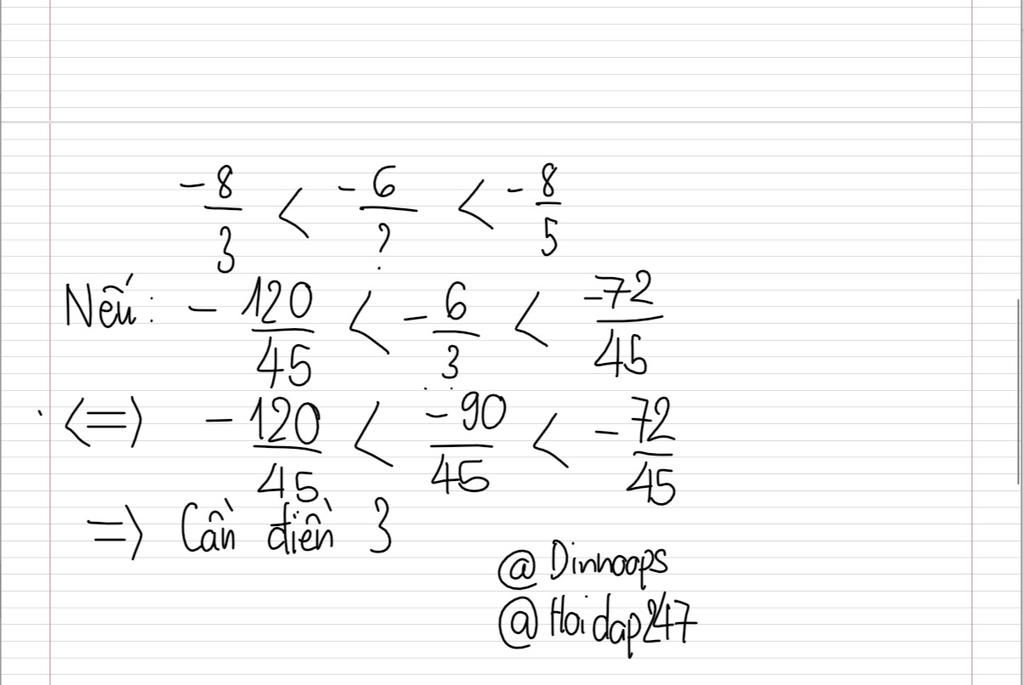 -8/3 < -6/? < -8/5
Nếu: -120/45 < -6/3 < -72/45
<=> -120/45 < -90/45 < -72/45
=> Cần điền 3
@Dinhoops
@Hoidap247